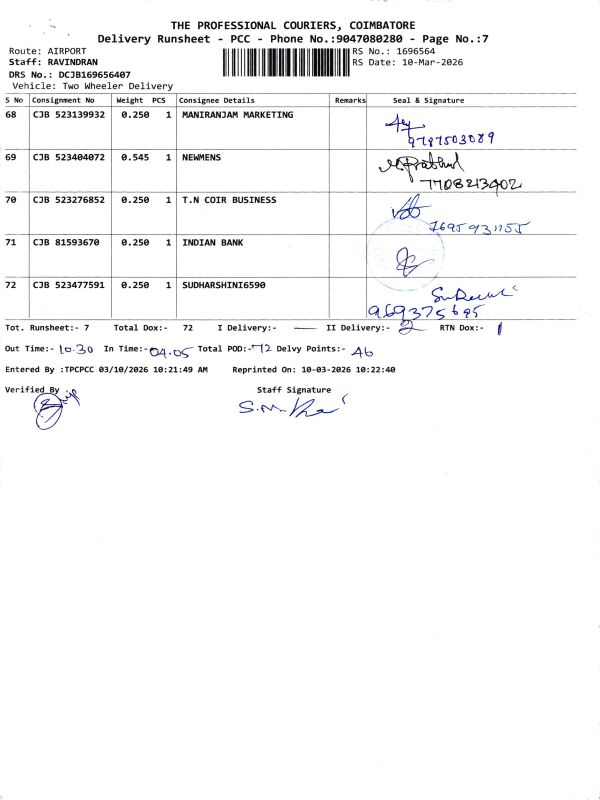 THE PROFESSIONAL COURIERS, COIMBATORE
Delivery Runsheet - PCC - Phone No.:9047080280 - Page No.:7
Route: AIRPORT RS No.: 1696564
Staff: RAVINDRAN RS Date: 10-Mar-2026
DRS No.: DCJB169656407
Vehicle: Two Wheeler Delivery
S No Consignment No Weight PCS Consignee Details Remarks Seal & Signature
68 CJB 523139932 0.250 1 MANIRANJAM MARKETING
9787503089
69 CJB 523404072 0.545 1 NEWMENS
7708213402
70 CJB 523276852 0.250 1 T.N COIR BUSINESS
7695931155
71 CJB 81593670 0.250 1 INDIAN BANK
72 CJB 523477591 0.250 1 SUDHARSHINI6590
969375695
Tot. Runsheet:- 7 Total Dox:- 72 I Delivery:- — II Delivery:- 2 RTN Dox:- 1
Out Time:- 10.30 In Time:- 04.05 Total POD:- 72 Delvy Points:- 46
Entered By :TPCPCC 03/10/2026 10:21:49 AM Reprinted On: 10-03-2026 10:22:40
Verified By Staff Signature